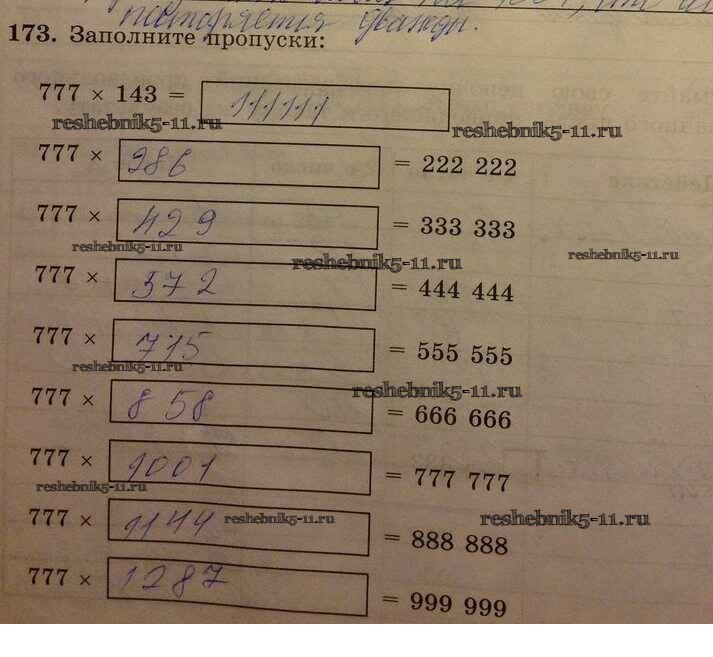 повторяется дважды.
173. Заполните пропуски:
777 × 143 = 111111
reshebnik5-11.ru reshebnik5-11.ru
777 × 286 = 222 222
777 × 429 = 333 333
reshebnik5-11.ru reshebnik5-11.ru reshebnik5-11.ru
777 × 572 = 444 444
777 × 715 = 555 555
reshebnik5-11.ru reshebnik5-11.ru
777 × 858 = 666 666
777 × 1001 = 777 777
reshebnik5-11.ru
777 × 1144 = 888 888
reshebnik5-11.ru reshebnik5-11.ru
777 × 1287 = 999 999